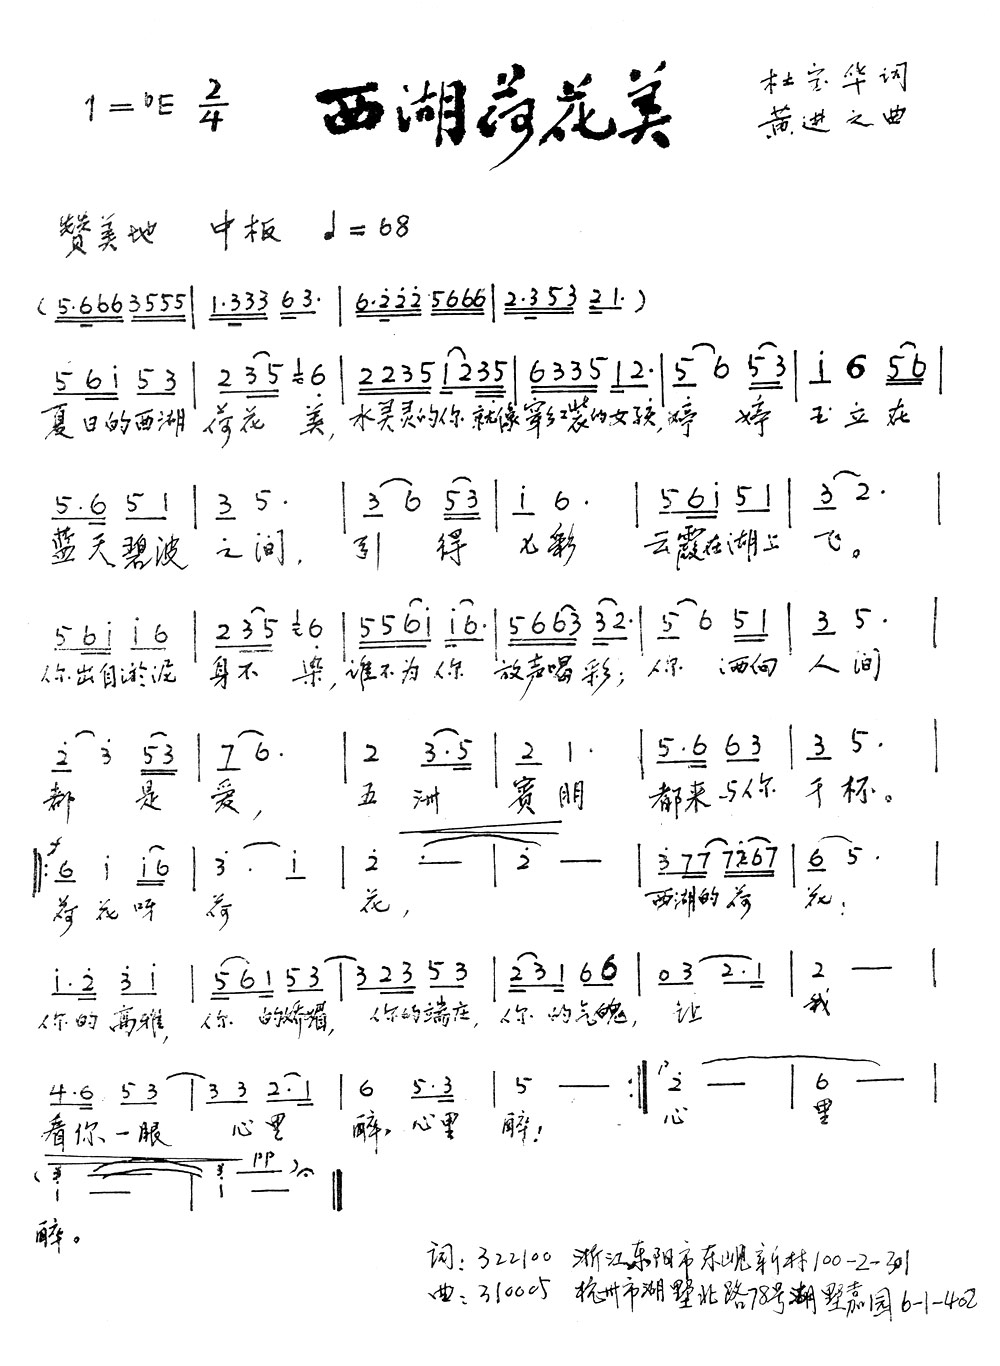 1=♭E 2/4 西湖荷花美 杜宝华词
黄进之曲
赞美地 中板 ♩=68
(5·666 3555| 1·333 63·| 6·222 5666| 2·353 21·)
561 53| 235 6| 2235 1235| 6335 12·| 5 6 53| 1 6 56|
夏日的西湖 荷花 美,水灵灵的你就像穿红装的女孩,婷 婷 玉立在
5·6 51| 3 5·| 3 6 53| 1 6·| 561 51| 3 2·|
蓝天碧波 之间, 引 得 七彩 云霞在湖上 飞。
561 16| 235 6| 5561 16·| 5663 32·| 5 6 51| 3 5·|
你出自淤泥 身不 染,谁不为你 放声喝彩; 你 洒向 人间
2 3 53| 7 6·| 2 3·5| 2 1·| 5·6 63| 3 5·|
都 是 爱, 五 洲 宾朋 都来与你 干杯。
f
‖:6 1 16| 3· 1| 2 —| 2 —| 377 7267| 6 5·|
荷花呀 荷 花, 西湖的荷 花;
1·2 31| 561 53| 323 53| 231 66| 03 2·1| 2 —|
你的高雅, 你 的娇媚, 你的端庄, 你 的气魄, 让 我
4·6 53| 33 2·1| 6 5·3| 5 — :‖ P 2 —| 6 —|
看你一眼 心里 醉,心里 醉! 心 里
pp
(3 3)
1 —| 1 —‖
醉。
词: 322100 浙江东阳市东岘新村100-2-301
曲: 310005 杭州市湖墅北路78号湖墅嘉园6-1-402